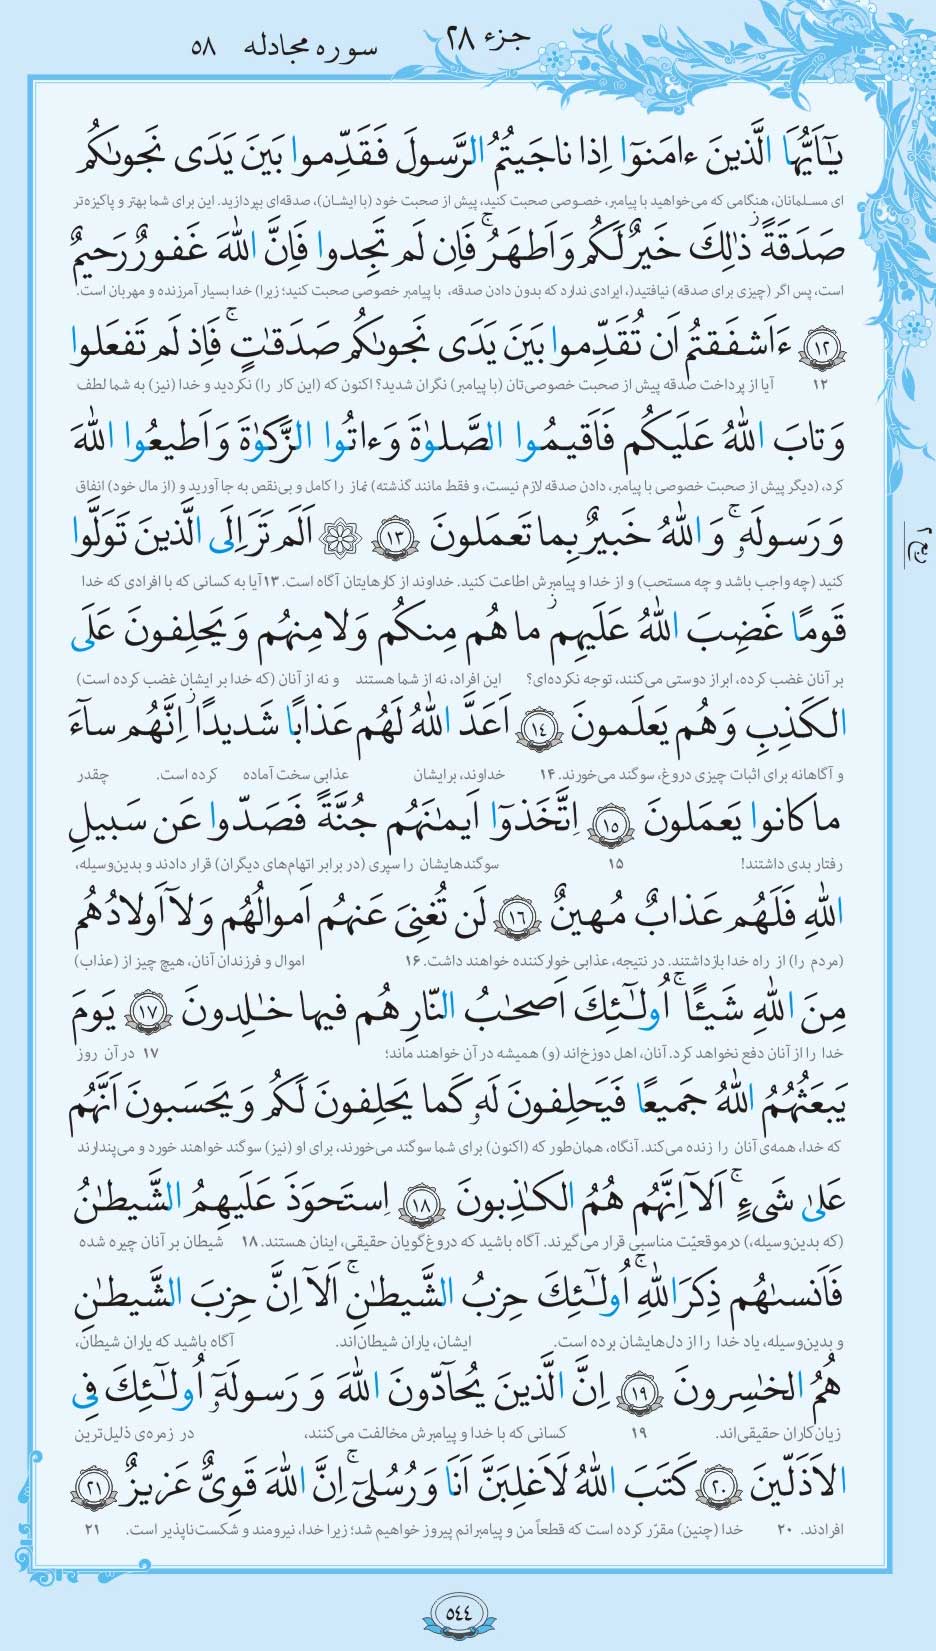 جزء ۲۸
سوره مجادله ۵۸
يٰٓاَيُّهَا الَّذينَ ءامَنوٓا اِذا ناجَيتُمُ الرَّسولَ فَقَدِّموا بَينَ يَدَى نَجوىٰكُم
ای مسلمانان، هنگامی که می‌خواهید با پیامبر، خصوصی صحبت کنید، پیش از صحبت خود (با ایشان)، صدقه‌ای بپردازید. این برای شما بهتر و پاکیزه‌تر
صَدَقَةً ۚ ذٰلِكَ خَيرٌ لَكُم وَ اَطهَرُ ۚ فَاِن لَم تَجِدوا فَاِنَّ اللّٰهَ غَفورٌ رَحيمٌ
است، پس اگر (چیزی برای صدقه) نیافتید(، ایرادی ندارد که بدون دادن صدقه، با پیامبر خصوصی صحبت کنید؛ زیرا) خدا بسیار آمرزنده و مهربان است.
﴿۱۲﴾ ءَاَشفَقتُم اَن تُقَدِّموا بَينَ يَدَى نَجوىٰكُم صَدَقٰتٍ ۚ فَاِذ لَم تَفعَلوا
۱۲ آیا از پرداخت صدقه پیش از صحبت خصوصی‌تان (با پیامبر) نگران شدید؟ اکنون که (این کار را) نکردید و خدا (نیز) به شما لطف
وَ تابَ اللّٰهُ عَلَيكُم فَاَقيمُوا الصَّلوٰةَ وَ ءاتُوا الزَّكوٰةَ وَ اَطيعُوا اللّٰهَ
کرد، (دیگر پیش از صحبت خصوصی با پیامبر، دادن صدقه لازم نیست، و فقط مانند گذشته) نماز را کامل و بی‌نقص به جا آورید و (از مال خود) انفاق
وَ رَسولَهٗ ۚ وَ اللّٰهُ خَبيرٌ بِما تَعمَلونَ ﴿۱۳﴾ اَلَم تَرَ اِلَى الَّذينَ تَوَلَّوا
کنید (چه واجب باشد و چه مستحب) و از خدا و پیامبرش اطاعت کنید. خداوند از کارهایتان آگاه است. ۱۳ آیا به کسانی که با افرادی که خدا
قَومًا غَضِبَ اللّٰهُ عَلَيهِم ما هُم مِنكُم وَلا مِنهُم وَ يَحلِفونَ عَلَى
بر آنان غضب کرده، ابراز دوستی می‌کنند، توجه نکرده‌ای؟ این افراد، نه از شما هستند و نه از آنان (که خدا بر ایشان غضب کرده است)
الكَذِبِ وَ هُم يَعلَمونَ ﴿۱۴﴾ اَعَدَّ اللّٰهُ لَهُم عَذابًا شَديدًا ۖ اِنَّهُم سآءَ
و آگاهانه برای اثبات چیزی دروغ، سوگند می‌خورند. ۱۴ خداوند، برایشان عذابی سخت آماده کرده است. چقدر
ما كانوا يَعمَلونَ ﴿۱۵﴾ اِتَّخَذوٓا اَيمٰنَهُم جُنَّةً فَصَدّوا عَن سَبيلِ
رفتار بدی داشتند! ۱۵ سوگندهایشان را سپری (در برابر اتهام‌های دیگران) قرار دادند و بدین‌وسیله،
اللّٰهِ فَلَهُم عَذابٌ مُهينٌ ﴿۱۶﴾ لَن تُغنِىَ عَنهُم اَموالُهُم وَلآ اَولادُهُم
(مردم را) از راه خدا بازداشتند. در نتیجه، عذابی خوارکننده خواهند داشت. ۱۶ اموال و فرزندان آنان، هیچ چیز از (عذاب)
مِنَ اللّٰهِ شَيئًا ۚ اُولٰٓئِكَ اَصحٰبُ النّارِ هُم فيها خٰلِدونَ ﴿۱۷﴾ يَومَ
خدا را از آنان دفع نخواهد کرد. آنان، اهل دوزخ‌اند (و) همیشه در آن خواهند ماند؛ ۱۷ در آن روز
يَبعَثُهُمُ اللّٰهُ جَميعًا فَيَحلِفونَ لَهٗ كَما يَحلِفونَ لَكُم وَ يَحسَبونَ اَنَّهُم
که خدا، همه‌ی آنان را زنده می‌کند. آنگاه، همان‌طور که (اکنون) برای شما سوگند می‌خورند، برای او (نیز) سوگند خواهند خورد و می‌پندارند
عَلىٰ شَىءٍ ۚ اَلآ اِنَّهُم هُمُ الكٰذِبونَ ﴿۱۸﴾ اِستَحوَذَ عَلَيهِمُ الشَّيطٰنُ
(که بدین‌وسیله،) در موقعیّت مناسبی قرار می‌گیرند. آگاه باشید که دروغ‌گویان حقیقی، اینان هستند. ۱۸ شیطان بر آنان چیره شده
فَاَنسىٰهُم ذِكرَ اللّٰهِ ۚ اُولٰٓئِكَ حِزبُ الشَّيطٰنِ ۚ اَلآ اِنَّ حِزبَ الشَّيطٰنِ
و بدین‌وسیله، یاد خدا را از دل‌هایشان برده است. ایشان، یاران شیطان‌اند. آگاه باشید که یاران شیطان،
هُمُ الخٰسِرونَ ﴿۱۹﴾ اِنَّ الَّذينَ يُحآدّونَ اللّٰهَ وَ رَسولَهٗٓ اُولٰٓئِكَ فِى
زیان‌کاران حقیقی‌اند. ۱۹ کسانی که با خدا و پیامبرش مخالفت می‌کنند، در زمره‌ی ذلیل‌ترین
الاَذَلّينَ ﴿۲۰﴾ كَتَبَ اللّٰهُ لَاَغلِبَنَّ اَنَا وَ رُسُلىٓ ۚ اِنَّ اللّٰهَ قَوِىٌّ عَزيزٌ ﴿۲۱﴾
افرادند. ۲۰ خدا (چنین) مقرّر کرده است که قطعاً من و پیامبرانم پیروز خواهیم شد؛ زیرا خدا، نیرومند و شکست‌ناپذیر است. ۲۱
۵۴۴